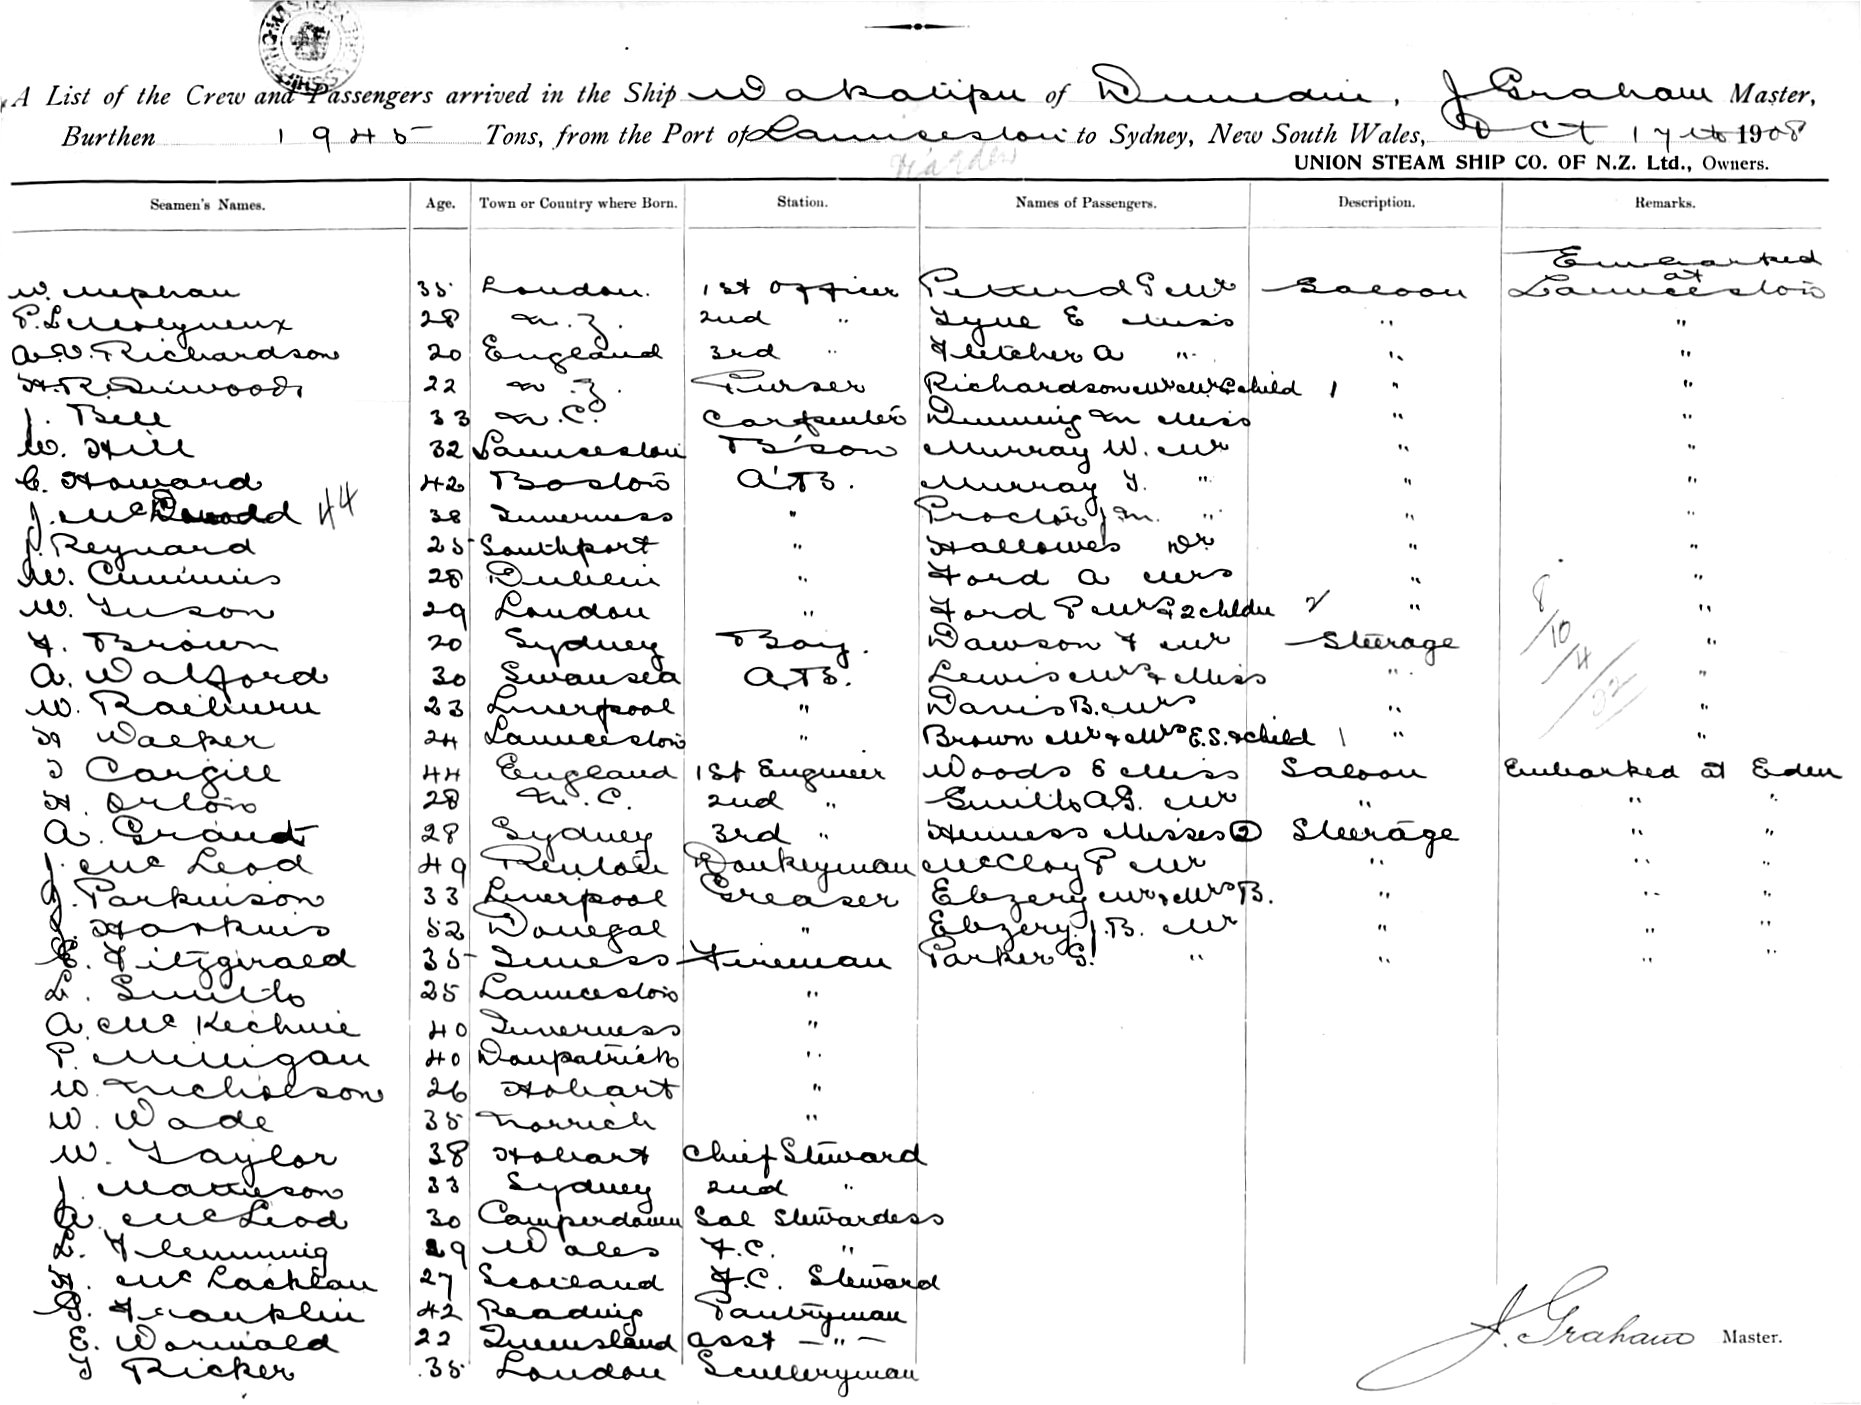 A List of the Crew and Passengers arrived in the Ship Wakatipu of Dunedin, J Graham Master,
Burthen 1945 Tons, from the Port of Launceston to Sydney, New South Wales, Oct 17th 1908
UNION STEAM SHIP CO. OF N.Z. Ltd., Owners.
Seamen's Names. Age. Town or Country where Born. Station. Names of Passengers. Description. Remarks.
Embarked at
W. Mephan 35 London. 1st Officer G Mr Saloon Launceston
P. Le Molyneux 28 N.Z. 2nd " Tyne E Miss " "
A.V. Richardson 20 England 3rd " Fletcher A " " "
H.R. 22 N.Z. Purser Richardson Mr Mrs & child 1 " "
J. Bell 33 N.C. Carpenter Dunning M Miss " "
W. Hill 32 Launceston B'son Murray W. Mr " "
C. Howard 42 Boston A.B. Murray T. " " "
J. McDonald 44 38 Inverness " Proctor J.M. " " "
J. Reynard 25 Southport " Hallowes Dr " "
W. Cummins 28 Dublin " Ford A Mrs " "
W. Tuson 29 London " Ford P Mr & 2 childn 2 " "
F. Brown 20 Sydney Boy. Dawson F Mr Steerage "
A. Walford 30 Swansea A.B. Lewis Mrs & Miss " "
W. Raeburn 23 Liverpool " Davis B. Mrs " "
H Walker 24 Launceston " Brown Mr & Mrs E.S. & child 1 " "
8/10/4/22
T Cargill 44 England 1st Engineer Woods E Miss Saloon Embarked at Eden
H. Orton 28 N.C. 2nd " Smith A.G. Mr " " "
A. Grant 28 Sydney 3rd " Henness Misses 2 Steerage " "
J. McLeod 49 Donkeyman McCloy P Mr " " "
J. Parkinson 33 Liverpool Greaser Ebzery Mr & Mrs B. " " "
J. Harkins 52 Donegal " Ebzery J.B. Mr " " "
E. Fitzgirald 35 Inness Fireman Parker G. " " " "
L. Smith 25 Launceston "
A. McKechnie 40 Inverness "
P. Milligan 40 Donpatrick "
W. Nicholson 26 Hobart "
W. Wade 35 Norrich "
W. Taylor 38 Hobart Chief Steward
J. Mattieson 33 Sydney 2nd "
A. McLeod 30 Camperdown Sal Stewardess
L. Flemming 29 Wales F.C. "
H. McLachlan 27 Scotland F.C. Steward
G. Franklin 42 Reading Pantryman
E. Wormald 22 Queensland asst — " —
T Ricker 35 London Sculleryman
J. Graham Master.